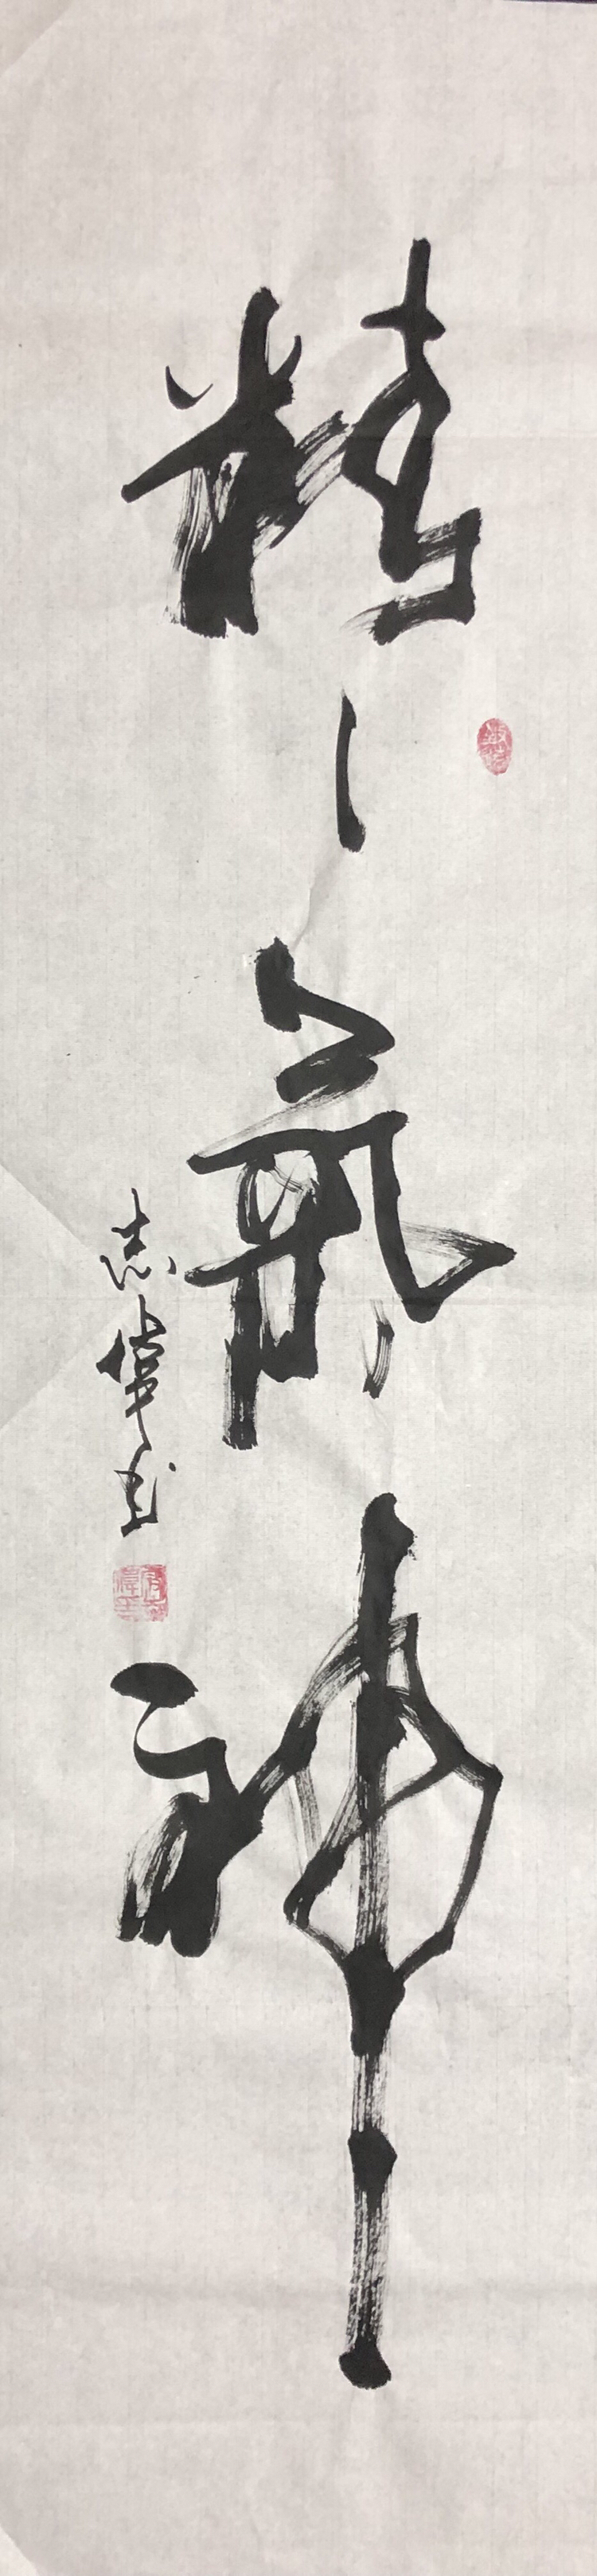 精氣神
志偉书